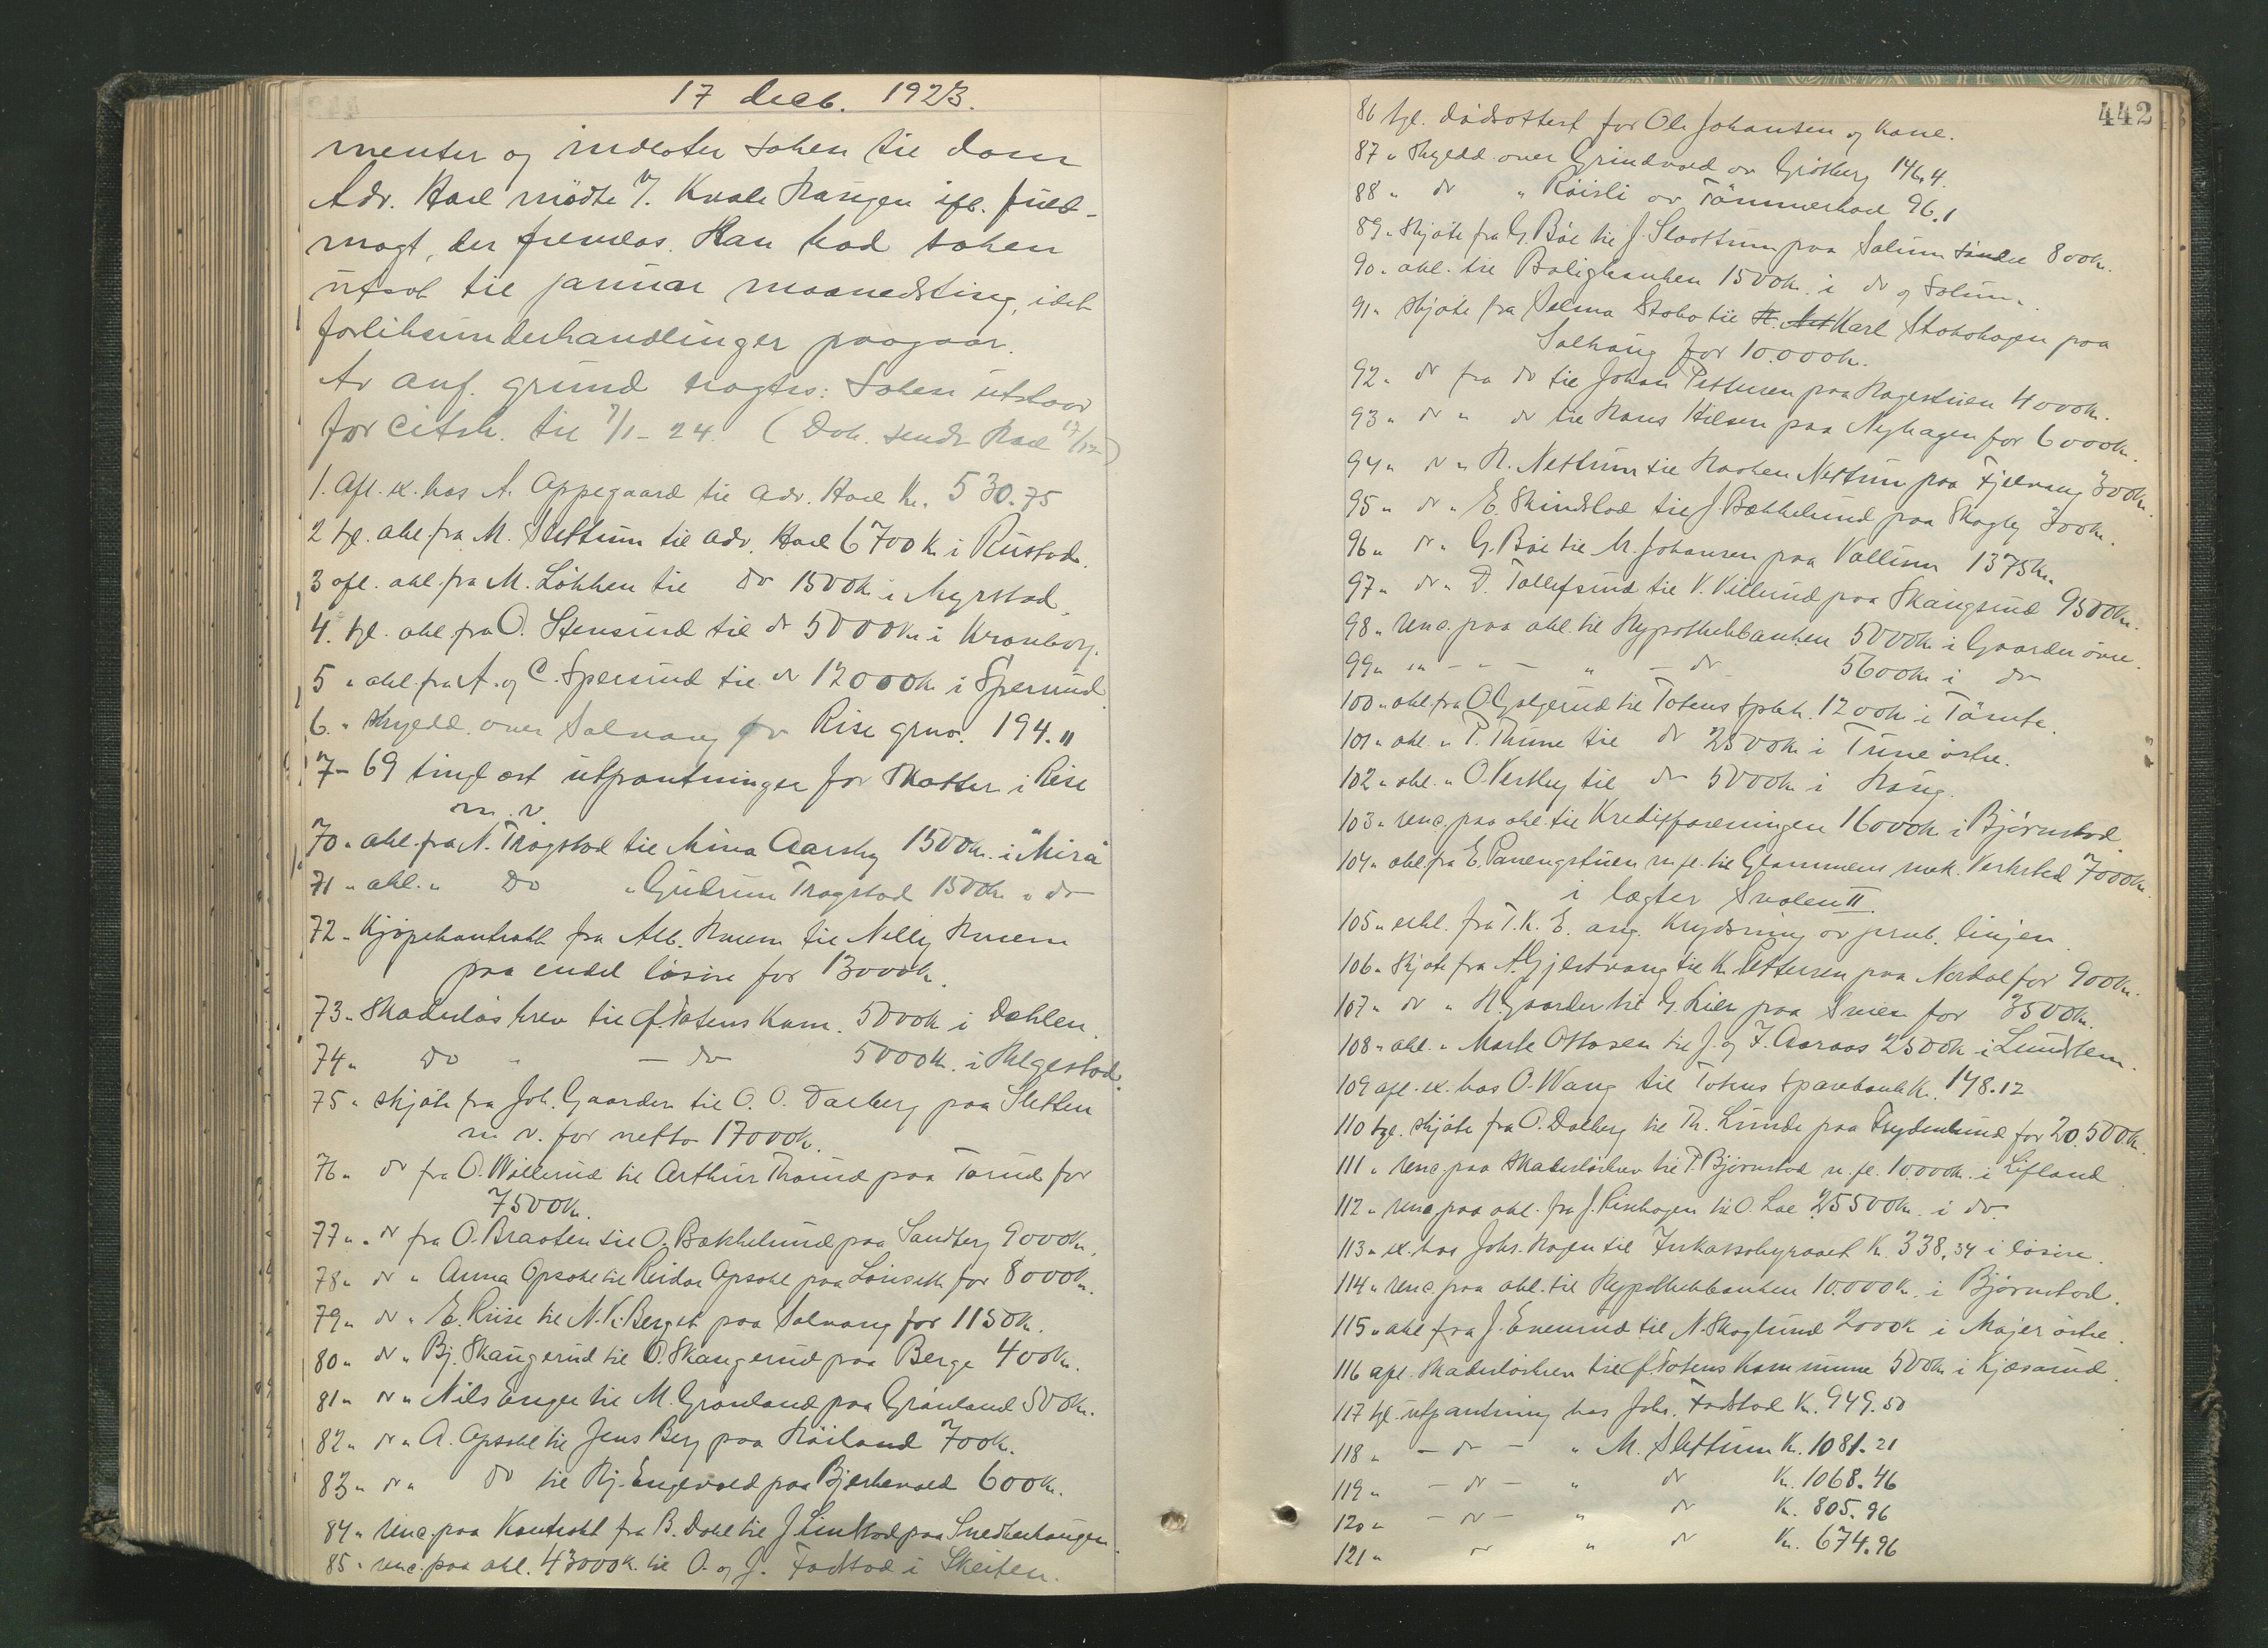 17 decb. 1923.
menter og indlater saken til dom
Adv. Hael mødte J. Kvale Haugen ifl. fuld-
magt, der fremlas. Han bad saken
utsat til januar maanedsting, idet
forliksunderhandlinger paagaar.
Av anf. grund vagtes: Saken utstaar
for citsk. til 7/1-24. (Dok. sendt Hael 17/12)
1. Afl. ex. hos A. Appegaard til adv. Hael Kr. 530.75
2 tgl. obl. fra M. Slettum til adv. Hael 6700 Kr i Rustad.
3 afl. obl. fra M. Løkken til do 1500 Kr i Myrstad.
4. tgl. obl fra O. Stensrud til do 5000 Kr. i Kronborg.
5 " obl. fra A. og C. Spersrud til do 12000 Kr. i Spersrud
6. " skyldd. over Solvang av Rise grno. 194.11
7-69 tingl æst utpantninger for skatter i Rise
m. v.
70 " obl. fra N. Thogstad til Mina Aarsby 1500 Kr. i Mira
71 " obl. " Do " Gudrun Thogstad 1500 Kr. " do
72 " Kjøpekontrakt fra Alb. Kruem til Nelly Kruem
paa endel løsøre for 13000 Kr.
73 " Skadesløsbrev til Ø. Totens Kom. 5000 Kr i Dahlen.
74 " Do " - do 5000 Kr. i Helgestad.
75 " skjøte fra Joh. Gaarder til O. O. Dalberg paa Sletten
m v. for netto 17000 Kr.
76 " do fra O. Willerud til Arthur Thorud paa Torud for
7500 Kr.
77 " do fra O. Braaten til O. Bækkelund paa Sandberg 9000 Kr.
78 " do " Anna Opsahl til Reidar Opsahl paa Løiseth for 8000 Kr.
79 " do " E. Riise til N. K. Berget paa Solvang for 1150 Kr.
80 " do " Bj. Skaugerud til O. Skaugerud paa Berge 400 Kr.
81 " do " Nils Anger til M. Grønland paa Grønland 500 Kr.
82 " do " A. Opsahl til Jens Berg paa Høiland 700 Kr.
83 " do " do til Hj. Engevold paa Bjerkevold 600 Kr.
84 " ren. paa Kontrakt fra B. Dahl til J Linstad paa Snedkerhaugen.
85 " ren. paa obl. 43000 Kr. til O. og J. Fodstad i Skeiten.
442
86 tgl. dødsattest for Ole Johansen og kone.
87 " skyldd. over Grindvold av Grøtberg 146.4.
88 " do " Røisli av Tømmerhol 96.1
89 " skjøte fra G. Bøe til J. Slaattum paa Solum søndre 800 Kr.
90 " obl. til Boligbanken 1500 Kr. i do og Solum.
91 " skjøte fra Selma Stabo til Karl Stabohagen paa
Solhaug for 10.000 Kr.
92 " do fra do til Johan Pettersen paa Hagestuen 4000 Kr.
93 " do " do til Hans Nilsen paa Nyhagen for 6000 Kr.
94 " do " H. Nettum til Haaken Nettum paa Fjelvang 300 Kr.
95 " do " E. Skindstad til J. Bækkelund paa Skogly 300 Kr.
96 " do " G. Bøe til M. Johansen paa Vallium 1375 Kr.
97 " do " D. Tollefsrud til V. Villerud paa Skaugsrud 9500 Kr.
98 " ren. paa obl. til Hypothekbanken 5000 Kr. i Gaarder øvre.
99 " " - " - " - do 5600 Kr. i do
100 " obl. fra O Galgerud til Totens Spbk. 1200 Kr. i Tømte.
101 " obl. " P. Thune til do 2500 Kr. i Tune østre.
102 " obl. " O. Vestby til do 5000 Kr. i Haug.
103 " ren. paa obl. til Kreditforeningen 16000 Kr. i Bjørnstad.
104 " obl. fra E. Panengstuen m. fl. til Glommens mek. Verksted 7000 Kr.
i lægter Svolen II.
105 " erkl. fra T. K. E. ang. Krydsning av jernb. linjen.
106 " skjøte fra A. Gjestvang til K. Pettersen paa Nordal for 900 Kr.
107 " do " H. Gaarder til G. Lien paa Sveen for 3500 Kr.
108 " obl. " Marte Ottosen til J. og F. Aaraas 2500 Kr. i Lundstein.
109 afl. ex. hos O. Wang til Totens Sparebank Kr. 148.12
110 tgl. skjøte fra O. Dalberg til Th. Lunde paa Frydenlund for 20.500 Kr.
111 " ren. paa skadesløsbrev til P. Bjørnstad m. fl. 10000 Kr. i Lifland.
112 " ren. paa obl. fra J. Risehagen til O. Lae 25500 Kr. i do.
113 " ex. hos Johs. Hagen til Inkassobyraaet Kr. 338.34 i løsøre.
114 " ren. paa obl. til Hypothekbanken 10.000 Kr. i Bjørnstad.
115 " obl. fra J. Evenrud til N. Skoglund 2000 Kr. i Majer østre.
116 afl. skadesløsbrev til Ø. Totens Kommune 500 Kr. i Kjøsrud.
117 tgl. utpantning hos Johs. Fodstad Kr. 949.50
118 " - do - " M. Slettum Kr. 1081.21
119 " - do - " do Kr. 1068.46
120 " - do - " do Kr. 805.96
121 " do " do Kr. 674.96